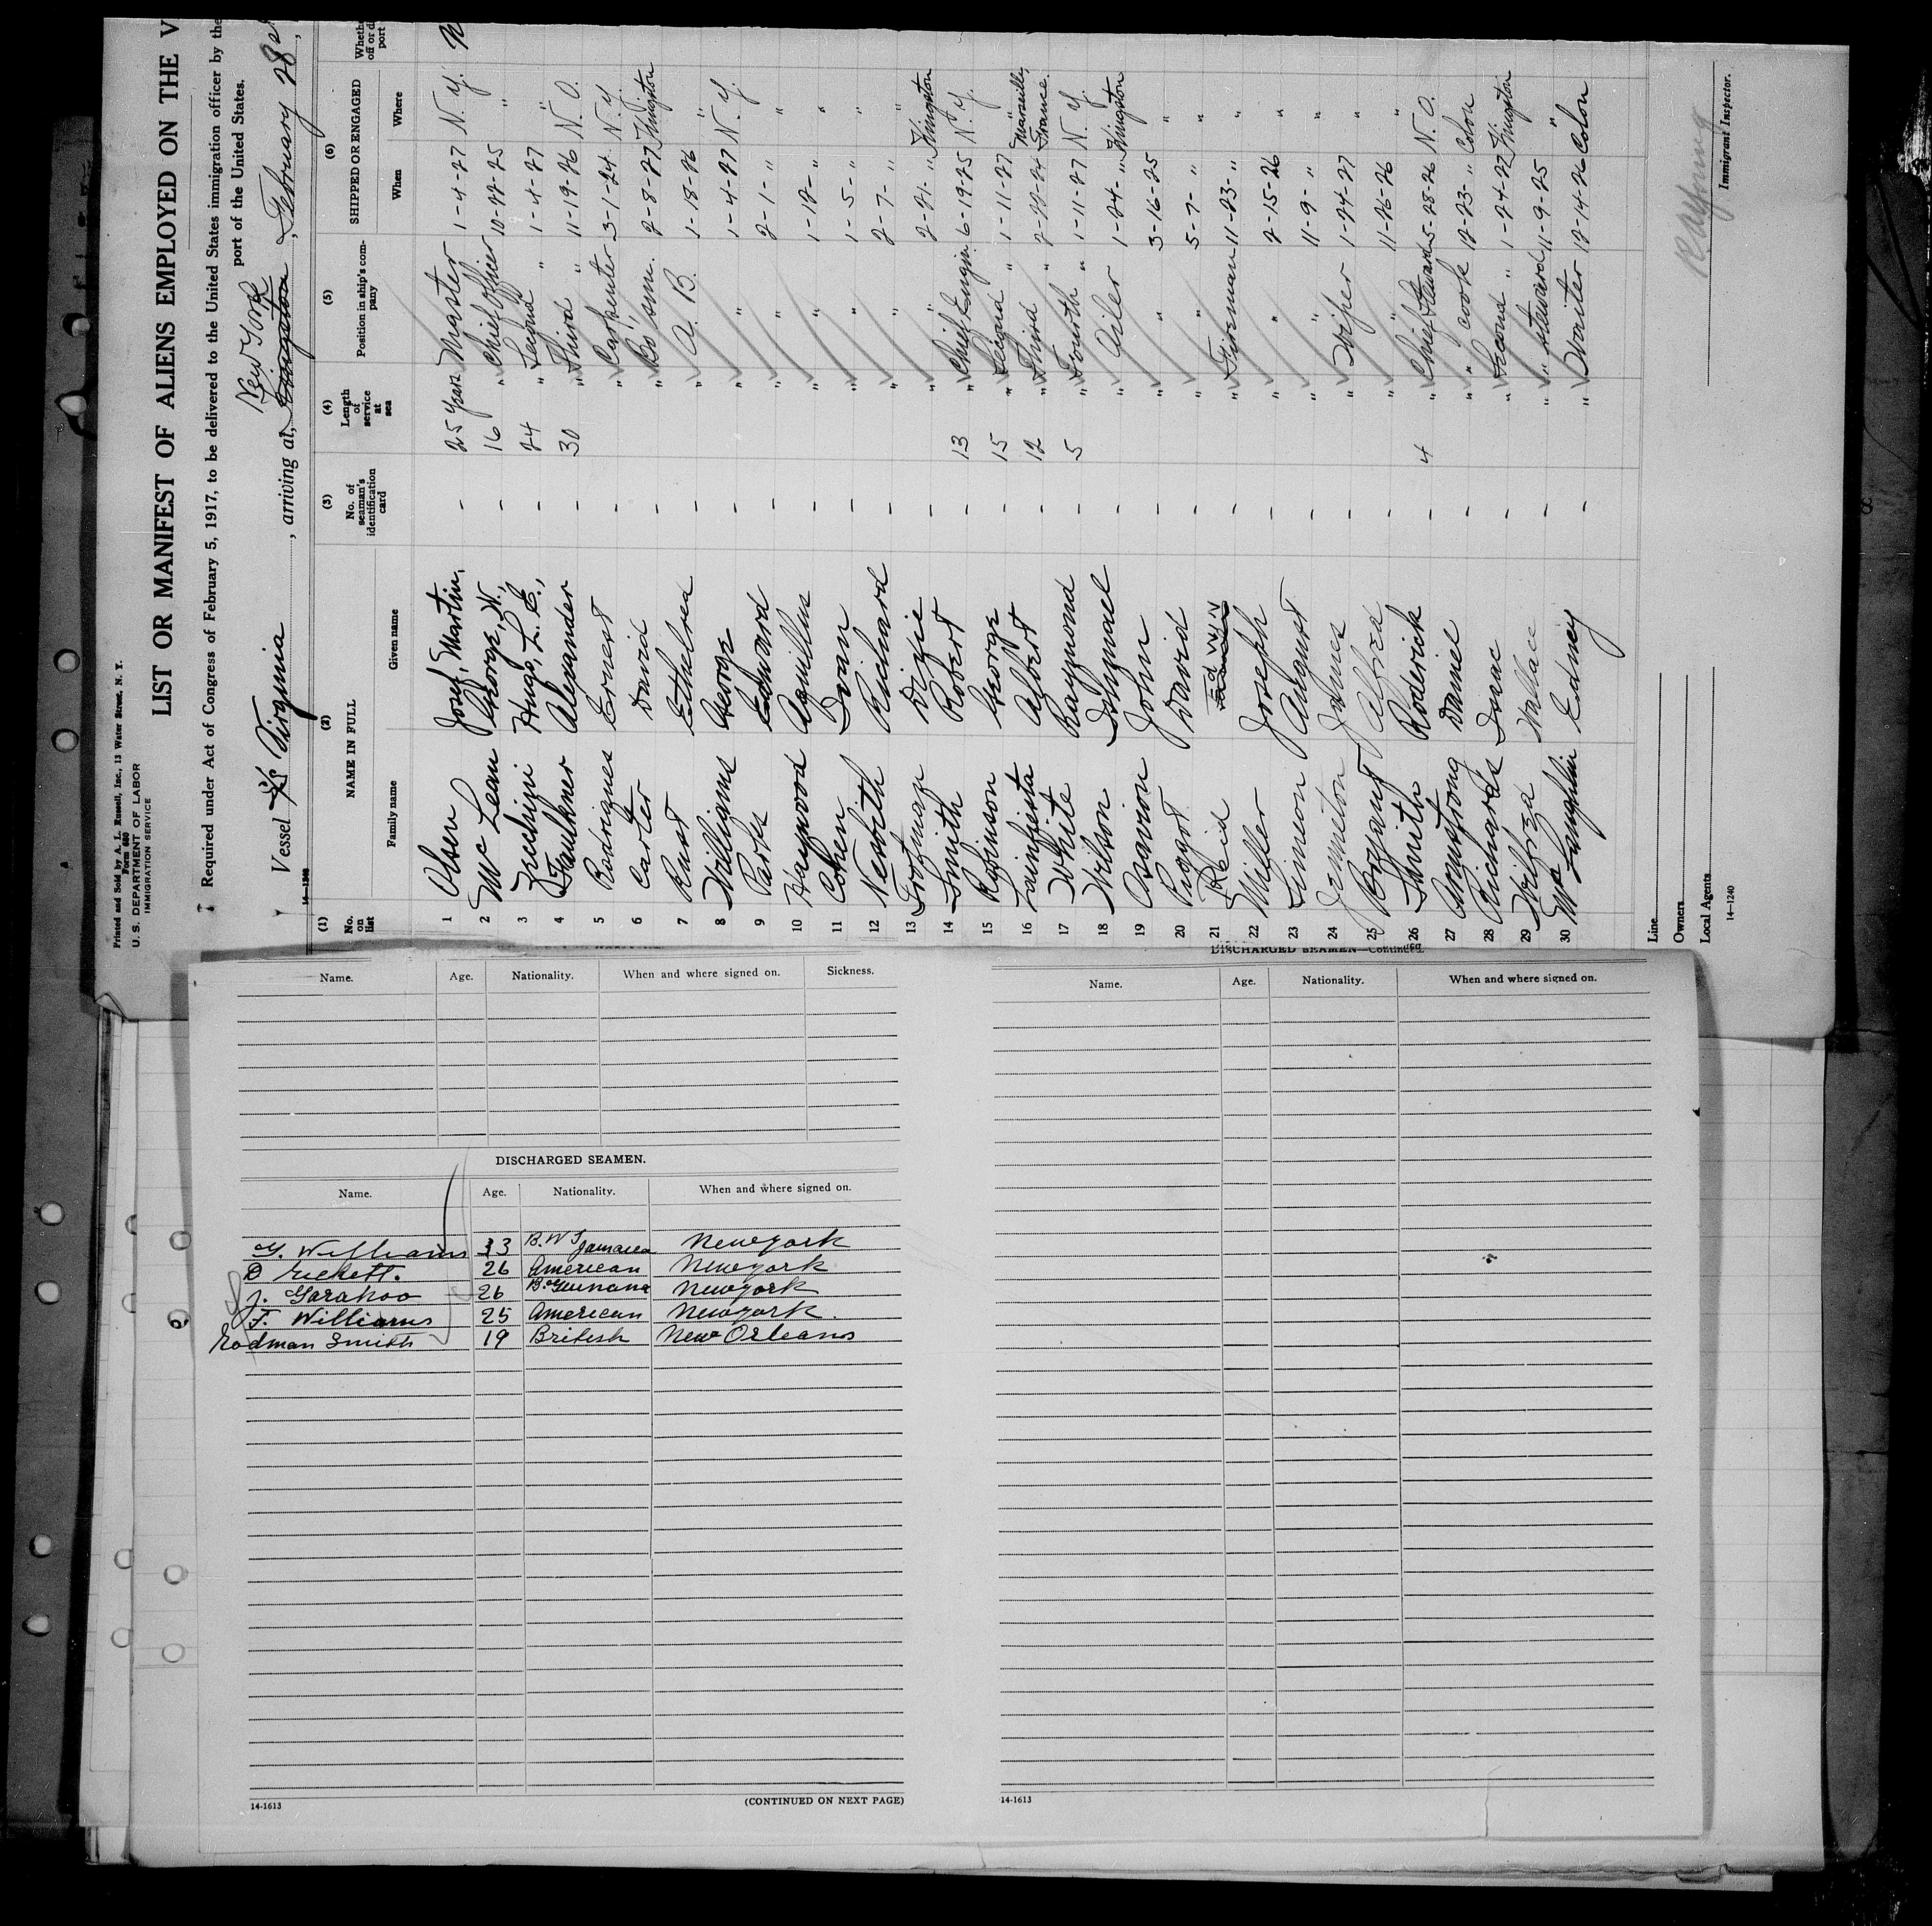 Printed and Sold by A. L. Russell, Inc., 13 Water Street, N. Y.
Form 680
U. S. DEPARTMENT OF LABOR
IMMIGRATION SERVICE
LIST OR MANIFEST OF ALIENS EMPLOYED ON THE V
Required under Act of Congress of February 5, 1917, to be delivered to the United States immigration officer by the
port of the United States.
New York
Vessel S/S Virginia, arriving at, Kingston, February 28
(1) (2) (3) (4) (5) (6)
No. on list NAME IN FULL No. of seaman's identification card Length of service at sea Position in ship's company SHIPPED OR ENGAGED
Family name Given name When Where
1 Olsen Josef, Martin. - 25 years Master 1-4-27 N. Y.
2 Mc Lean George, W., - 16 " Chief Officer 10-27-25 "
3 Hugo, L. E., - 24 " Second " 1-4-27 "
4 Faulkner Alexander - 30 " Third " 11-19-26 N. O.
5 Rodriques Ernest - " Carpenter 3-1-24 N. Y.
6 Carter David - " Bo'sun. 2-8-27 Kingston
7 Rust Ethelred - " A. B. 1-18-26 "
8 Williams George - " " 1-4-27 N. Y.
9 Parks Edward - " " 2-1- " "
10 Haywood Aquillus - " " 1-12- " "
11 Cohen Ivan - " " 1-5- " "
12 Neworth Richard - " " 2-7- " "
13 Trotman Dixie - " " 2-21- " Kingston
14 Smith Robert - 13 " Chief Engin. 6-19-25 N. Y.
15 Robinson George - 15 " Second " 1-11-27 "
16 Lainfiesta Albert - 12 " Third " 2-22-24 Marseille, France.
17 White Raymond - 5 " Fourth " 1-11-27 N. Y.
18 Wilson Ishmael - " Oiler 1-24- " Kingston
19 Osavion John - " " 3-16-25 "
20 Piggot David - " " 5-7- " "
21 Reid - " Fireman 11-23- " "
22 Miller Joseph - " " 2-15-26 "
23 Simeon August - " " 11-9- " "
24 Jemmeton James - " Wiper 1-24-27 "
25 Bryant Alfred - " " 11-26-26 "
26 Smith Roderick - 4 " Chief Steward 5-28-26 N. O.
27 Armstrong Daniel - " " cook 12-23- " Colon
28 Richards Isaac - " Second " 1-24-27 Kingston
29 Wilfred Wallace - " " steward 11-9-25 "
30 McLaughlin Edney - " Waiter 12-14-26 Colon
Line
Owners
Local Agents
14-1240
Immigrant Inspector.
Name. Age. Nationality. When and where signed on. Sickness.
DISCHARGED SEAMEN.
Name. Age. Nationality. When and where signed on.
G. Williams 33 B.W.I Jamaica Newyork
D Rickett. 26 American Newyork
J. Garahoo 26 B. Guinana Newyork
F. Williams 25 American Newyork.
Rodman Smith 19 British New Orleans
14-1613 (CONTINUED ON NEXT PAGE)
DISCHARGED SEAMEN—Continued.
Name. Age. Nationality. When and where signed on.
14-1613